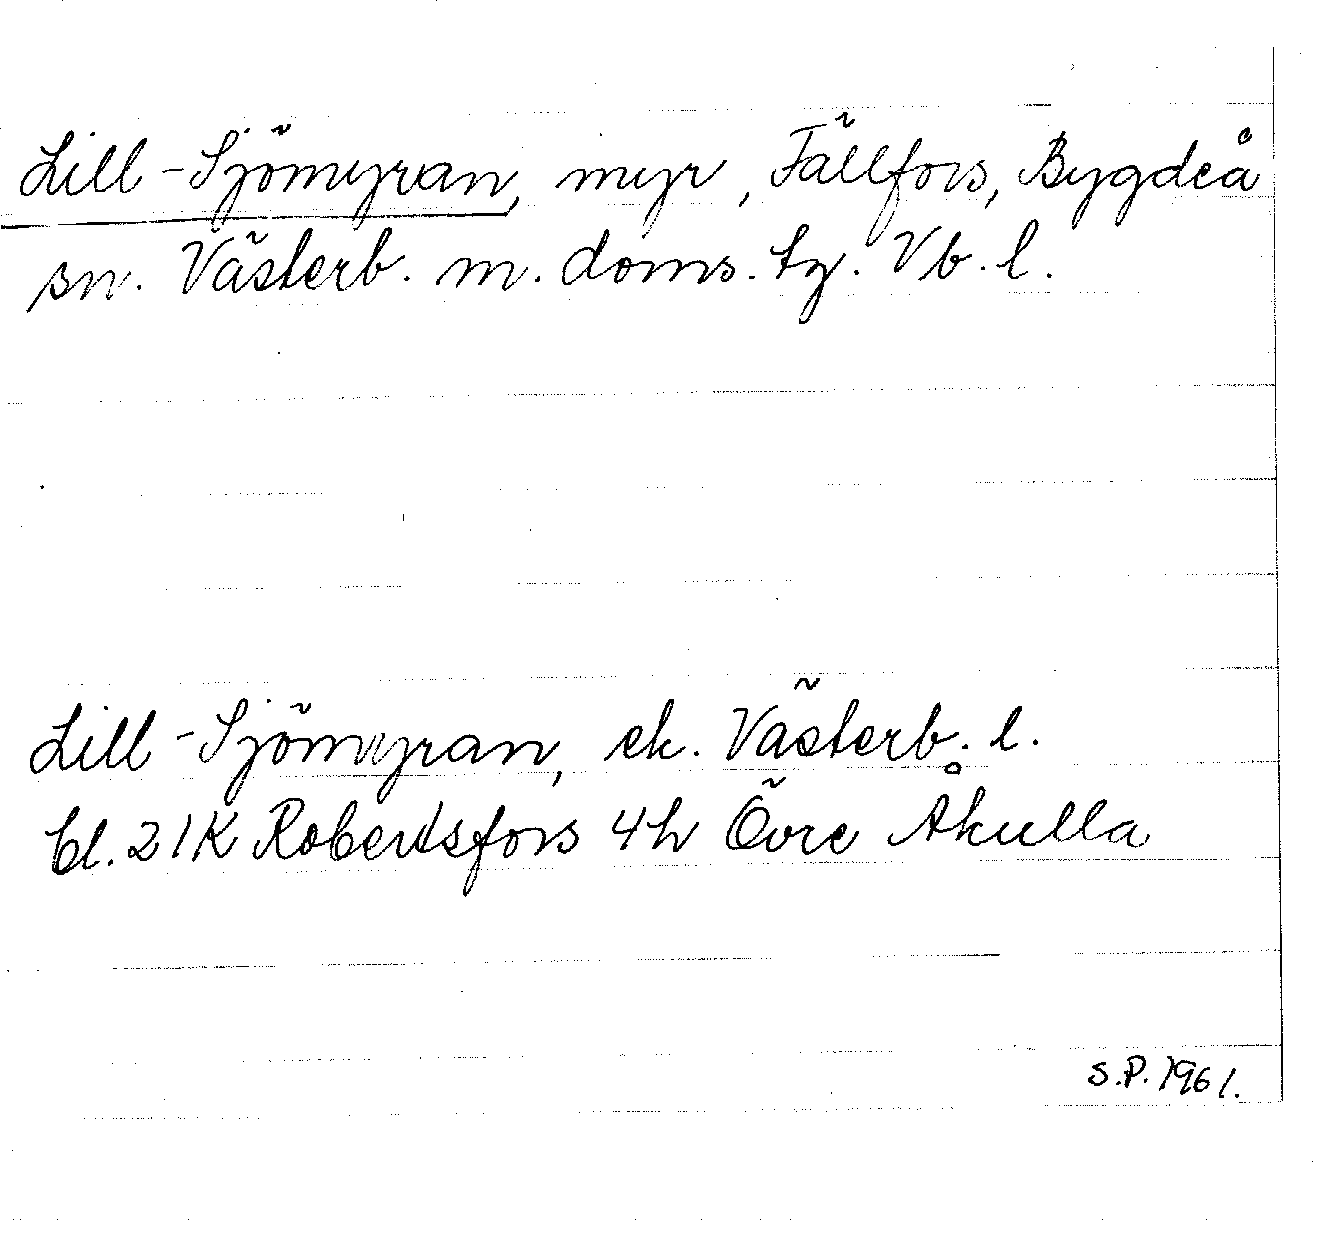 Lill-Sjömyran, myr, Fällfors, Bygdeå
sn. Västerb. m. doms. tg. Vb. l.
Lill-Sjömyran, ek. Västerb. l.
bl. 21K Robertsfors 4h Övre Åkulla
S.P. 1961.